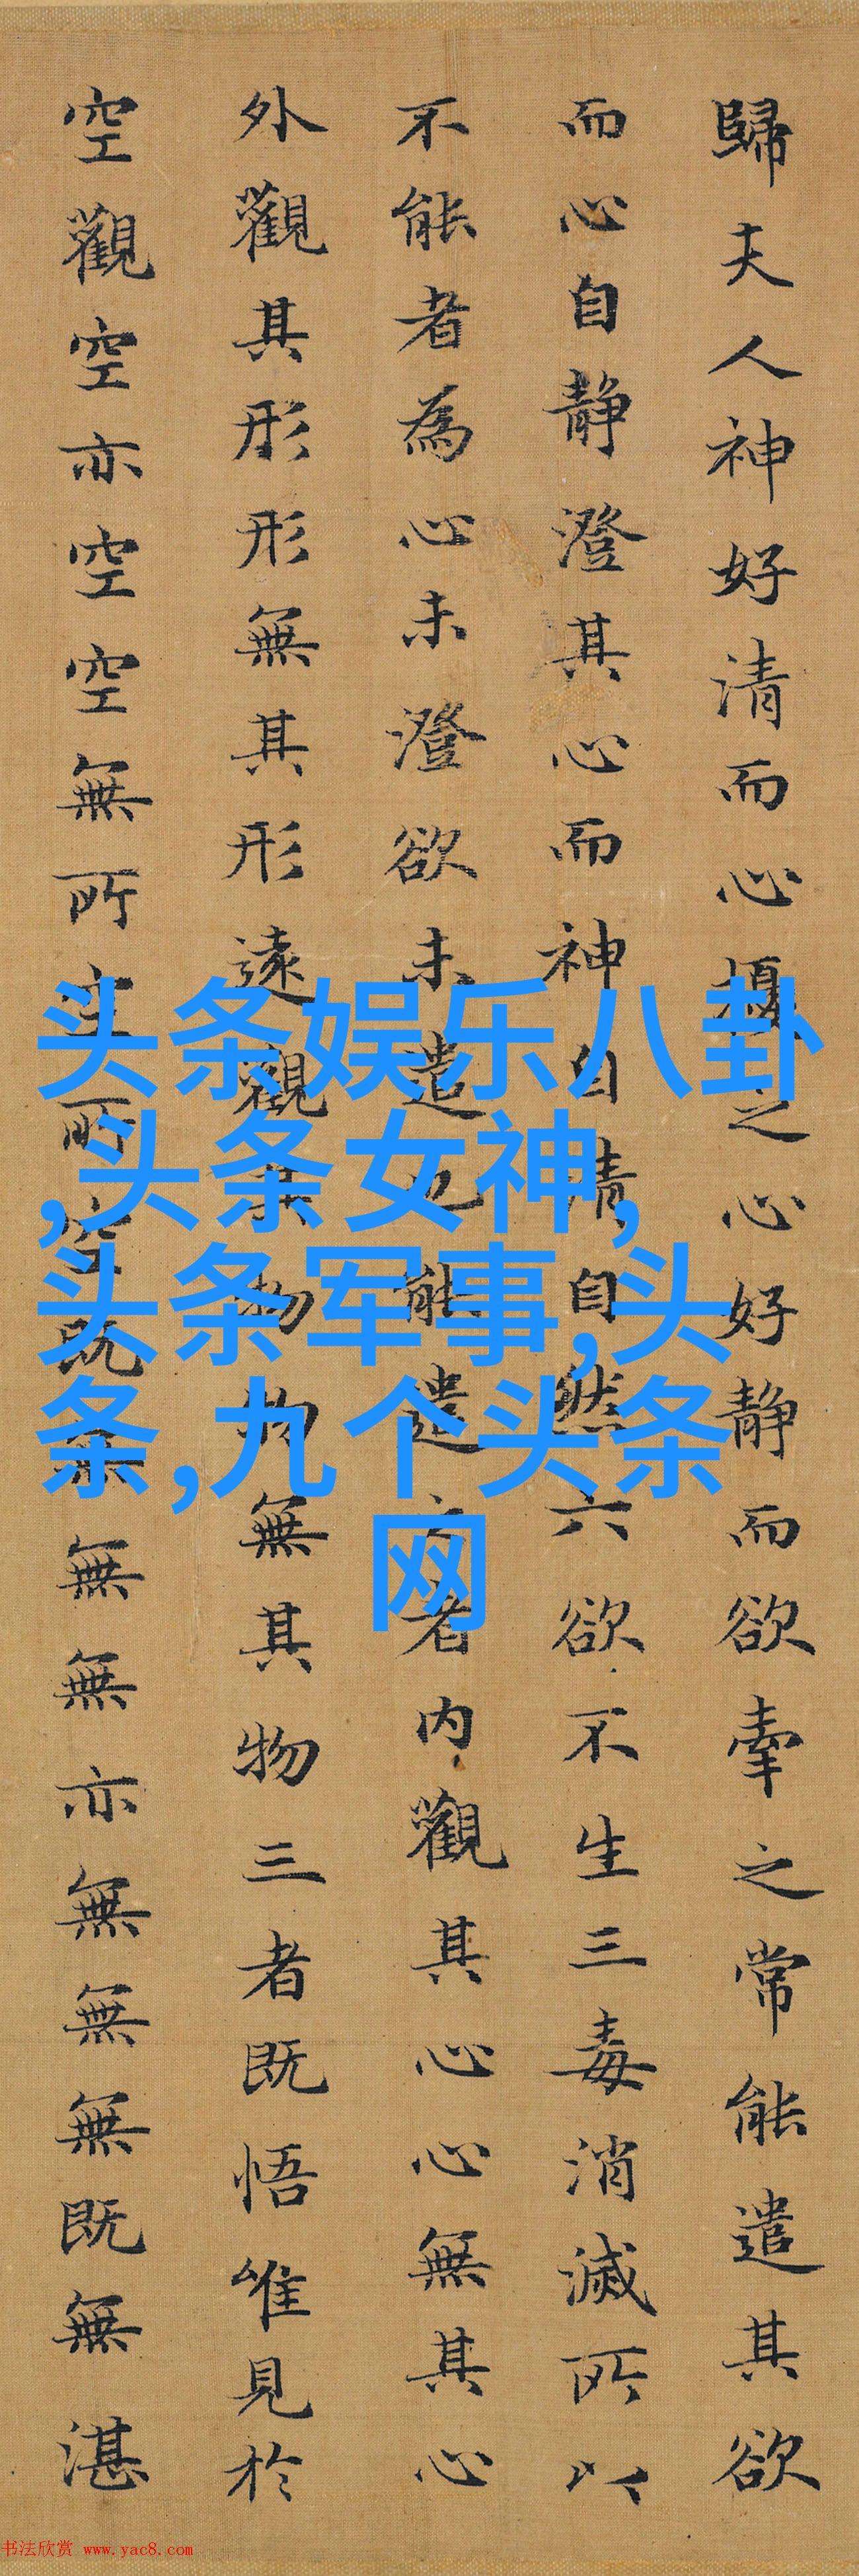 歸夫人神好清而心擾之心好静而欲牽之常能遣其欲
而心自静澄其心而神自清自然六欲不生三毒消滅所以
不能者為心未澄欲未遣也能遣之者内觀其心心無其心
外觀其形形無其形遠觀其物物無其物三者既悟唯見於
空觀空亦空空無所空所空既無無無亦無無無既無湛
头条娱乐八卦
,头条女神,
头条军事,头
条,九个头条
网
书法欣赏 www.yac8.com